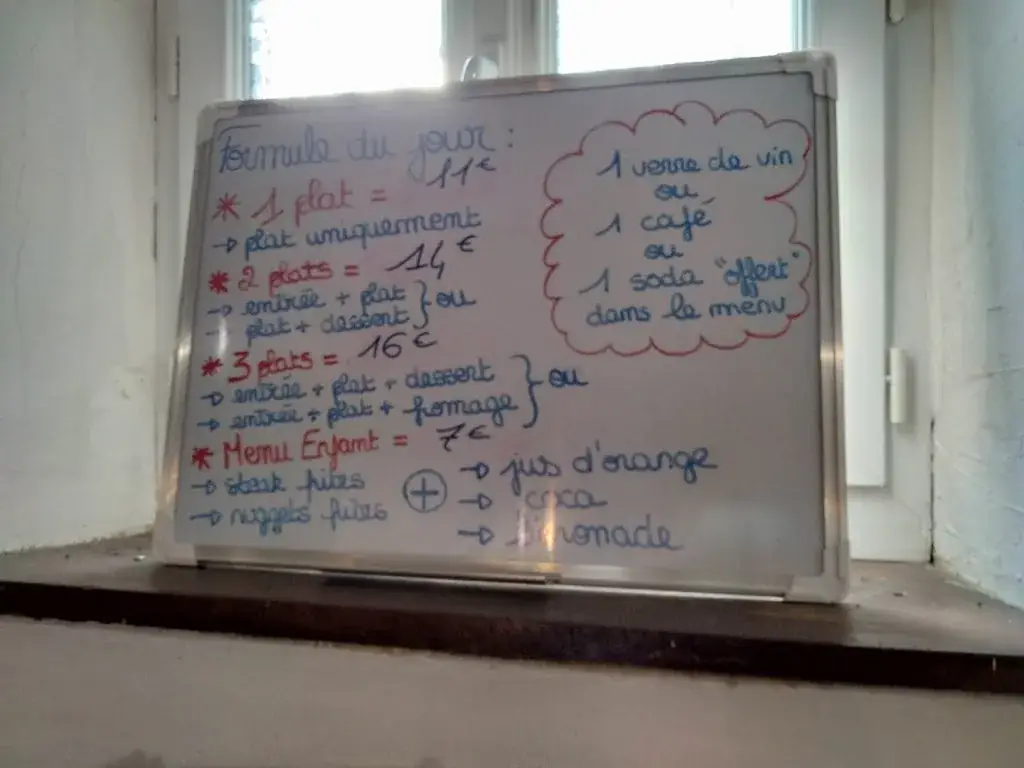 Formule du jour :
* 1 plat = 11€
→ plat uniquement
* 2 plats = 14€
→ entrée + plat } ou
→ plat + dessert
* 3 plats = 16€
→ entrée + plat + dessert } ou
→ entrée + plat + fromage
* Menu Enfant = 7€
→ steak frites
→ nuggets frites
+
→ jus d'orange
→ coca
→ limonade
1 verre de vin
ou
1 café
ou
1 soda "offert"
dans le menu